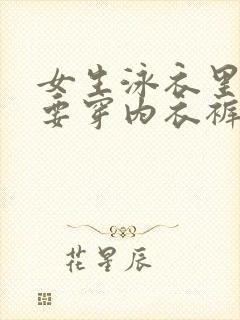 女生泳衣里
要穿内衣裤
花星辰